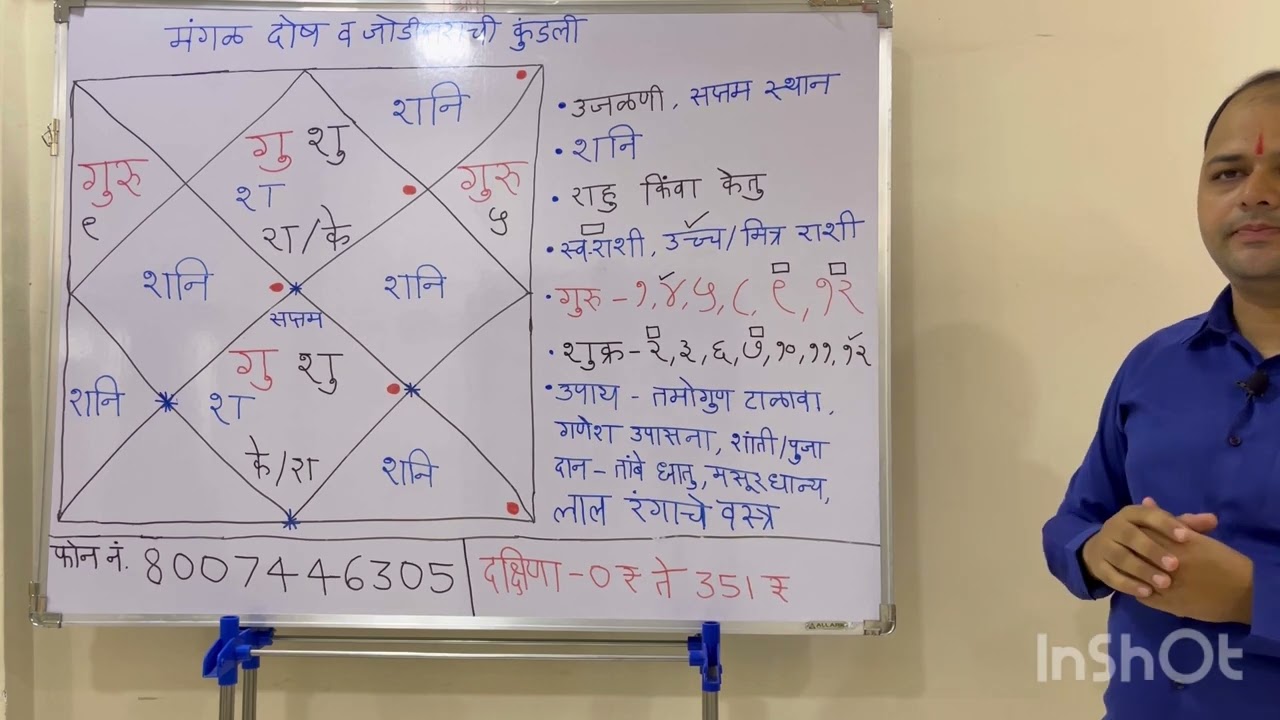 मंगळ दोष व जोडीदाराची कुंडली
शनि
गु शु
गुरु
श
गुरु
९
५
रा/के
शनि
शनि
सप्तम
गु शु
शनि
श
के/रा
शनि
• उजळणी, सप्तम स्थान
• शनि
• राहु किंवा केतु
• स्व-राशी, उच्च/मित्र राशी
• गुरु - १, ४, ५, ८, ९, १२
• शुक्र - २, ३, ६, ७, १०, ११, १२
• उपाय - तमोगुण टाळावा,
गणेश उपासना, शांती/पुजा
दान - तांबे धातु, मसूर धान्य,
लाल रंगाचे वस्त्र
फोन नं. 8007446305
दक्षिणा - 0₹ ते 351₹
InShOt